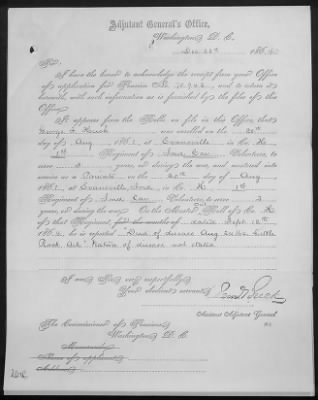 Adjutant General's Office,
Washington, D. C.
Dec 23d 1864.
Sir,
I have the honor to acknowledge the receipt from your Office
of application for Pension No. and to return it
herewith, with such information as is furnished by the files of this
Office.
It appears from the Rolls on file in this Office, that
George was enrolled on the 20th
day of Aug, 1861, at Evansville in Co. K
1st Regiment of Ind Cav Volunteers, to
serve 3 years, or during the war, and mustered into
service as a Private on the 20th day of Aug
1861, at Evansville, Ind, in Co. K 1st
Regiment of Ind Cav Volunteers, to serve 3
years, or during the war. On the Muster Roll of Co. K
of that Regiment, for the months of dated Sept. 16th
1864, he is reported "Died of disease Aug 24/64 Little
Rock Ark." Nature of disease not stated
I am, Sir, very respectfully,
Your obedient servant,
Assistant Adjutant General
The Commissioner of Pensions,
Washington, D. C.